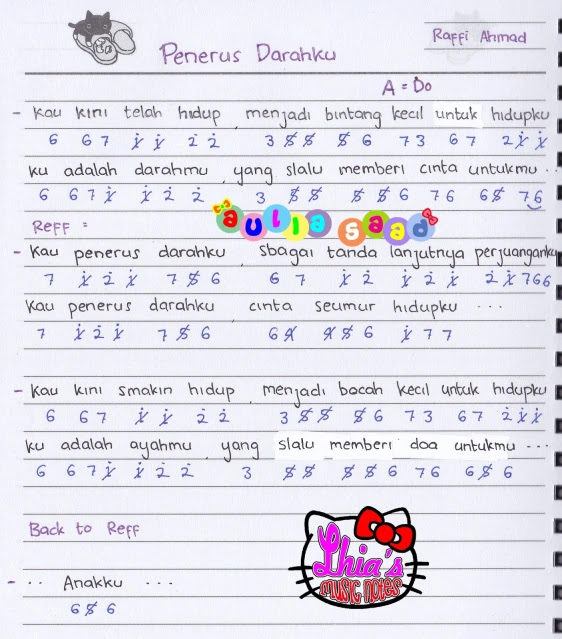 Penerus Darahku
Raffi Ahmad
A = Do
- Kau kini telah hidup, menjadi bintang kecil untuk hidupku
6 6 7 i̸ i̸ 2̇ 2̇ 3 5̸ 5̸ 5̸ 6 7 3 6 7 2̇ i̸ i̸
ku adalah darahmu, yang slalu memberi cinta untukmu ..
6 6 7 i̸ i̸ 2̇ 2̇ 3 5̸ 5̸ 5̸ 5̸ 6 7 6 6 5̸ 7 6
aulia saad
Reff :
- Kau penerus darahku, sbagai tanda lanjutnya perjuanganku
7 i̸ 2̇ i̸ 7 5̸ 6 6 7 i̸ 2̇ i̸ 2̇ i̸ 2̇ i̸ 7 6 6
Kau penerus darahku, cinta seumur hidupku ...
7 i̸ 2̇ i̸ 7 5̸ 6 6 4̸ 4̸ 5̸ 6 i̸ 7 7
- Kau kini smakin hidup, menjadi bocah kecil untuk hidupku
6 6 7 i̸ i̸ 2̇ 2̇ 3 5̸ 5̸ 5̸ 6 7 3 6 7 2̇ i̸ i̸
ku adalah ayahmu, yang slalu memberi doa untukmu ...
6 6 7 i̸ i̸ 2̇ 2̇ 3 5̸ 5̸ 5̸ 5̸ 6 7 6 6 5̸ 6
Back to Reff
Lhia's
music notes
- .. Anakku ...
6 5̸ 6